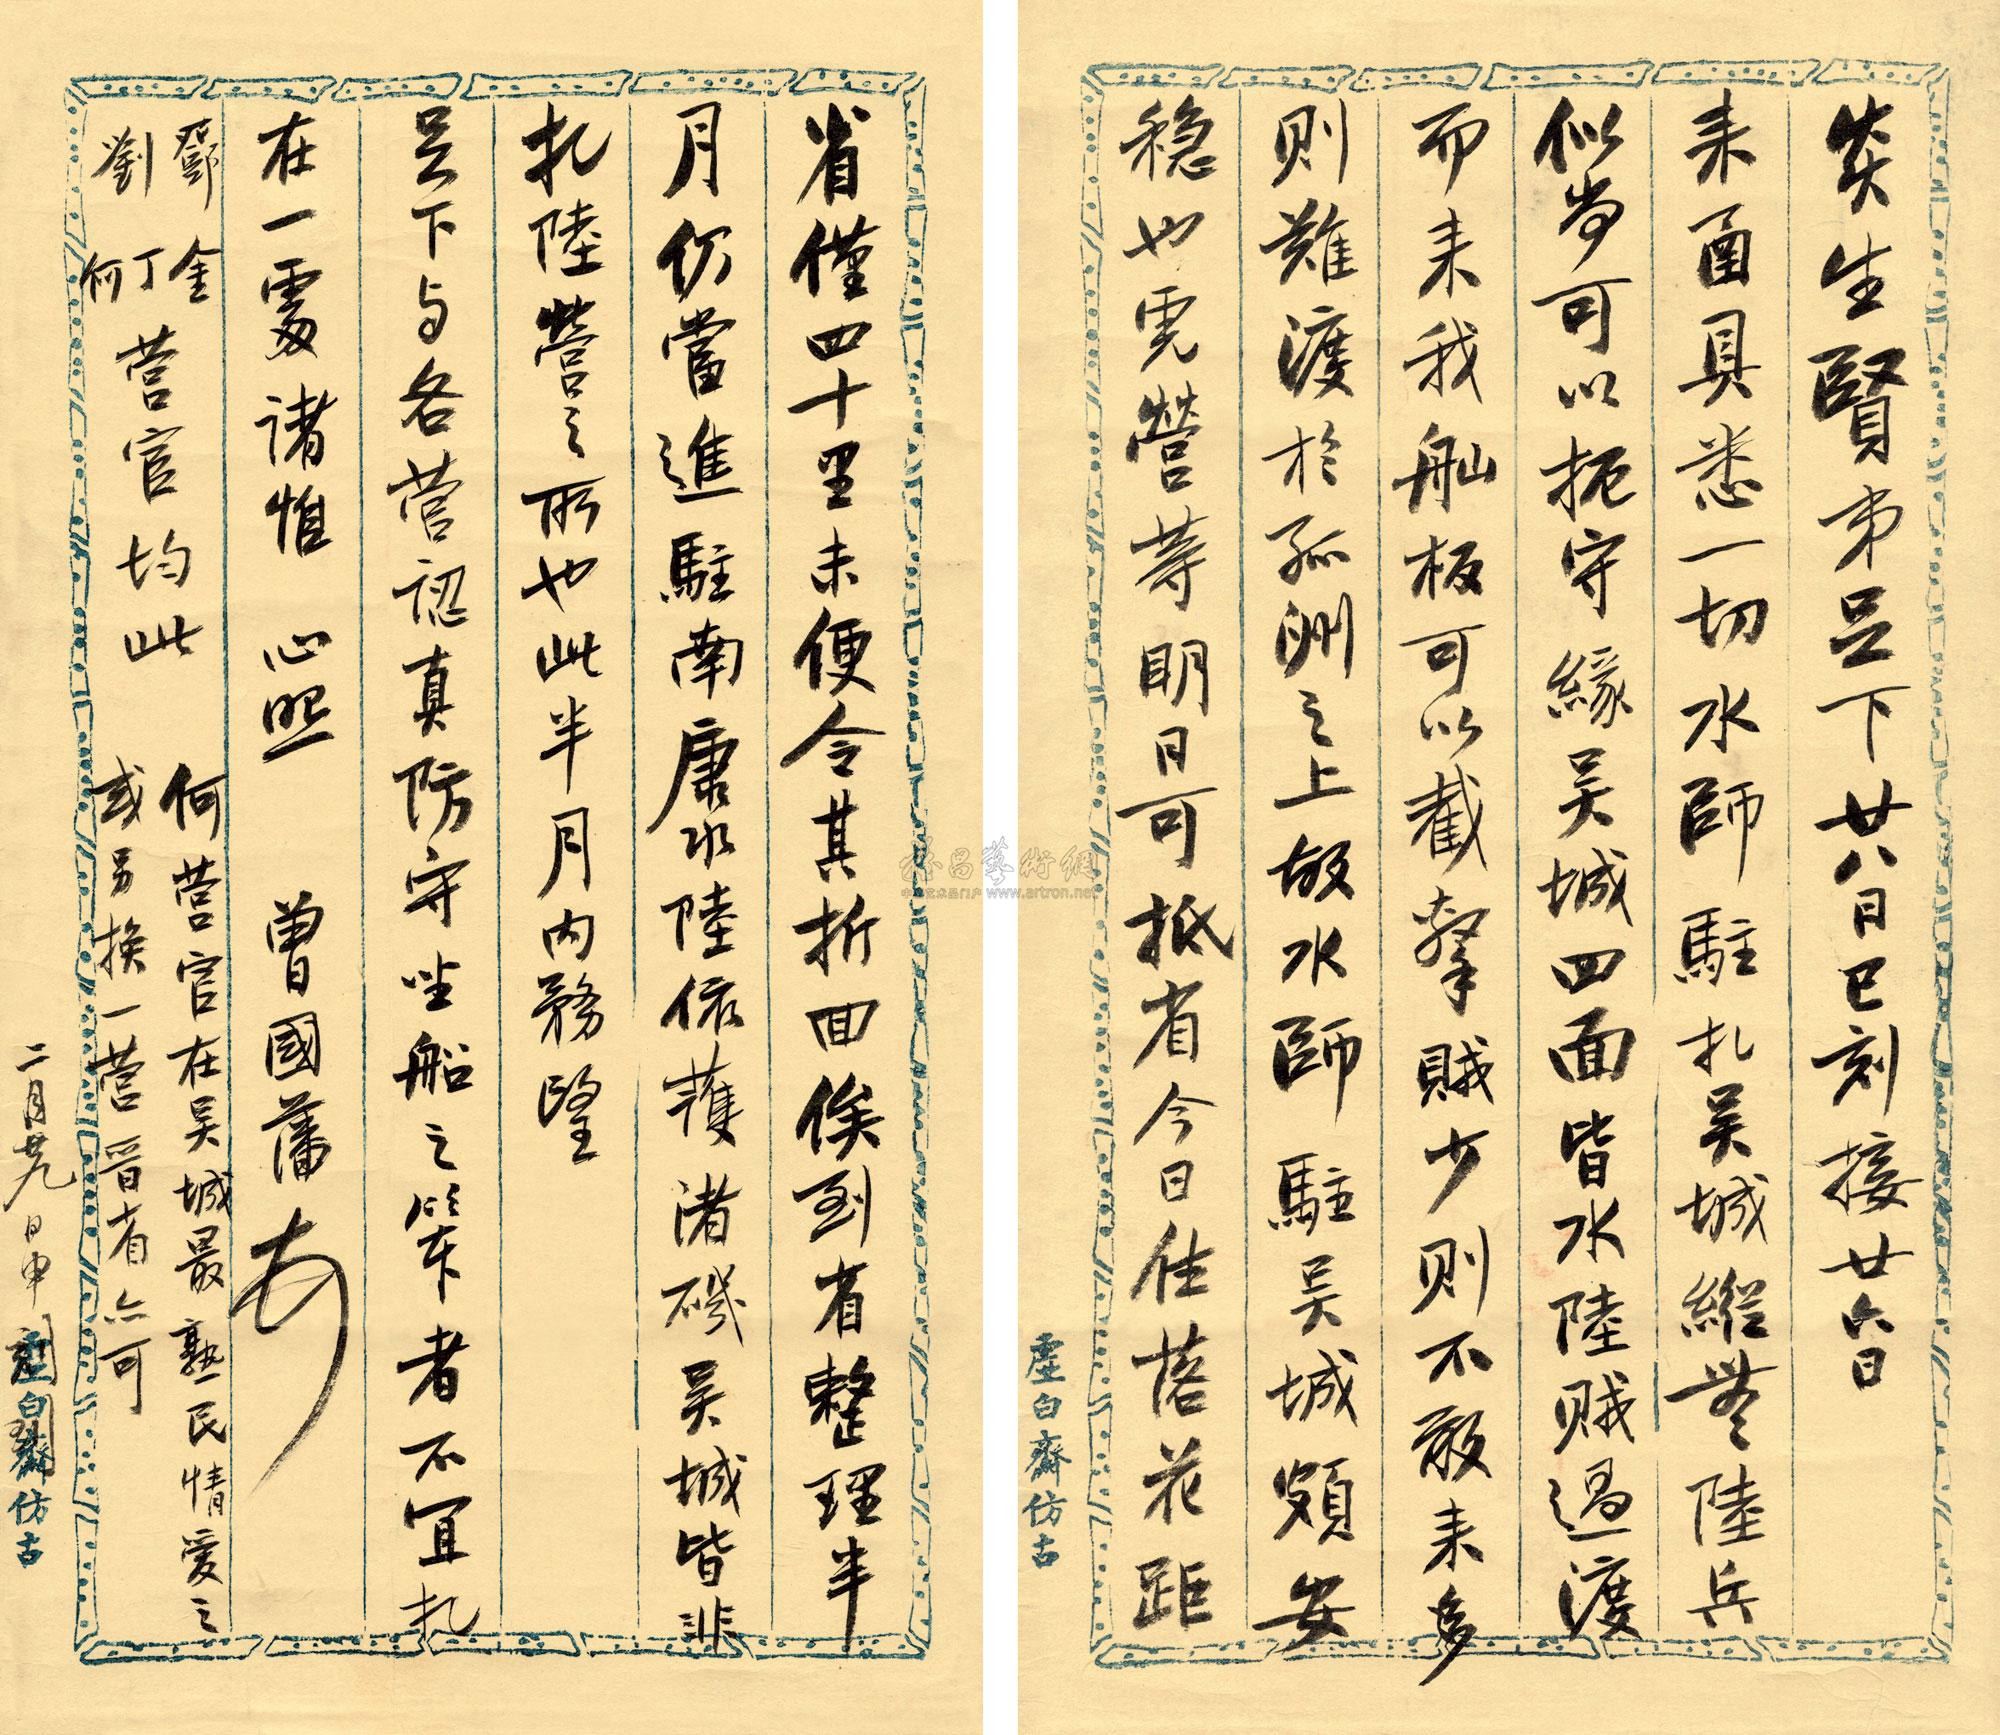 炎生賢弟足下廿八日巳刻接廿六日
来函具悉一切水師駐扎吴城縱無陸兵
似尚可以扼守緣吴城四面皆水陸賊過渡
而来我舢板可以截擊賊少則不敢来多
則難渡於孤洲之上故水師駐吴城頗安
穏也霓營等明日可抵省今日住落花距
虚白齋仿古
省僅四十里未便令其折回俟到省整理半
月仍當進駐南康水陸依護渚磯吴城皆非
扎陸營之所也此半月内務望
足下与各营認真防守坐船之笨者不宜扎
在一處諸惟 心照 曾國藩
鄧 金
劉 丁 何 营官均此
何营官在吴城最熟民情爱之
或另换一营晋省亦可
二月廿九日申刻
虚白齋仿古
中国艺术品门户 www.artron.net